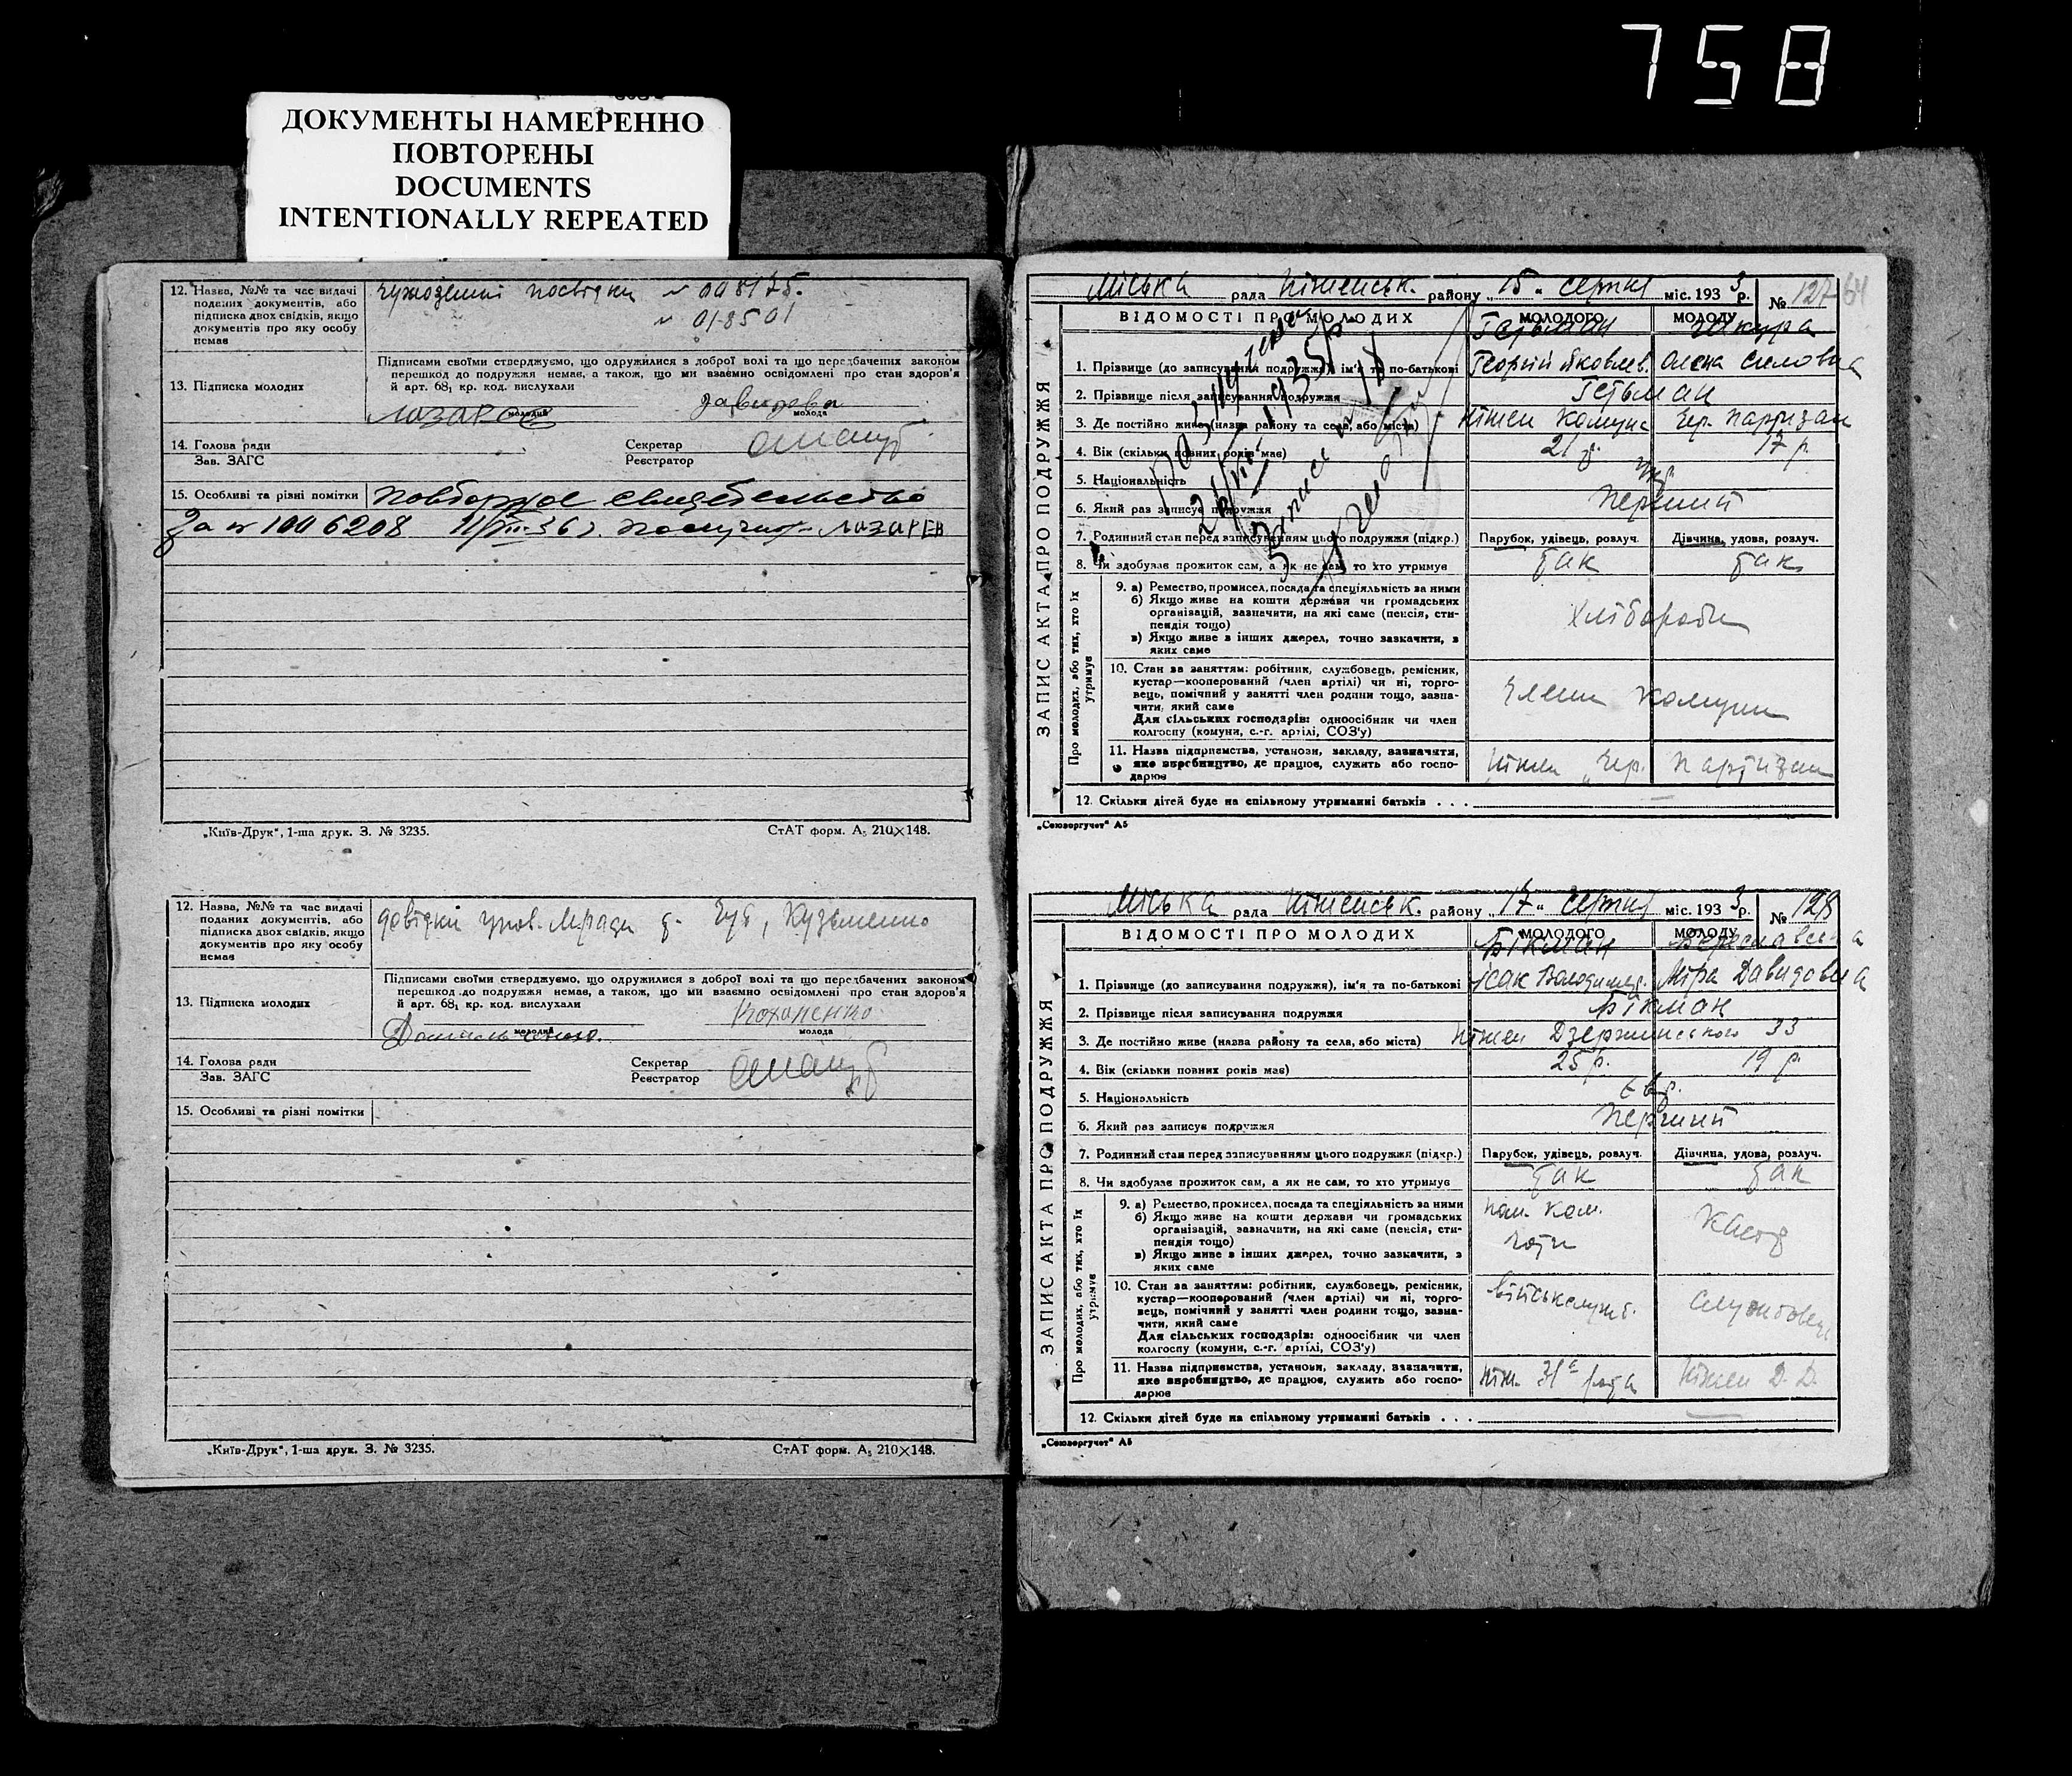 758
ДОКУМЕНТЫ НАМЕРЕННО
ПОВТОРЕНЫ
DOCUMENTS
INTENTIONALLY REPEATED
12. Назва, №№ та час видачі
поданих документів, або
підписка двох свідків, якщо
документів про яку особу
немає
№ 008175.
№ 018501
Підписами своїми стверджуємо, що одружилися з доброї волі та що передбачених законом
перешкод до подружжя немає, а також, що ми взаємно освідомлені про стан здоров'я
й арт. 68₁ кр. код. вислухали
13. Підписка молодих
молодий
молода
14. Голова ради
Зав. ЗАГС
Секретар
Реєстратор
15. Особливі та різні помітки
Повторное свидетельство
за № 1006208 11/XII-36 г. получил Лазарев
„Київ-Друк“, 1-ша друк. З. № 3235.
СтАТ форм. А₅ 210×148.
12. Назва, №№ та час видачі
поданих документів, або
підписка двох свідків, якщо
документів про яку особу
немає
довідки Кузьменко
Підписами своїми стверджуємо, що одружилися з доброї волі та що передбачених законом
перешкод до подружжя немає, а також, що ми взаємно освідомлені про стан здоров'я
й арт. 68₁ кр. код. вислухали
13. Підписка молодих
молодий
молода
14. Голова ради
Зав. ЗАГС
Секретар
Реєстратор
15. Особливі та різні помітки
„Київ-Друк“, 1-ша друк. З. № 3235.
СтАТ форм. А₅ 210×148.
Міська рада Ніженськ. району „15“ серпня міс. 1933 р. № 127
64
ЗАПИС АКТА ПРО ПОДРУЖЖЯ
ВІДОМОСТІ ПРО МОЛОДИХ
МОЛОДОГО
МОЛОДУ
Гетьман
1. Прізвище (до записування подружжя), ім'я та по-батькові
Георгій Яковлев. Олена Силовна
2. Прізвище після записування подружжя
Гетьман
3. Де постійно живе (назва району та села, або міста)
Ніжен Комуна Чер. Партизан
4. Вік (скільки повних років має)
21 р. 17 р.
5. Національність
укр.
6. Який раз записує подружжя
перший
7. Родинний стан перед записуванням цього подружжя (підкр.)
Парубок, удівець, розлуч.
Дівчина, удова, розлуч.
8. Чи здобуває прожиток сам, а як не сам, то хто утримує
так
так
Про молодих, або тих, хто їх утримує
9. а) Ремество, промисел, посада та спеціяльність за ними
б) Якщо живе на кошти держави чи громадських
організацій, зазначити, на які саме (пенсія, сти-
пендія тощо)
в) Якщо живе з інших джерел, точно зазначити, з
яких саме
хлібороби
10. Стан за заняттям: робітник, службовець, ремісник,
кустар—кооперований (член артілі) чи ні, торго-
вець, помічний у занятті член родини тощо, зазна-
чити, який саме
Для сільських господарів: одноосібник чи член
колгоспу (комуни, с.-г. артілі, СОЗ'у)
члени комуни
11. Назва підприємства, установи, закладу, зазначити,
яке виробництво, де працює, служить або госпо-
дарює
Ніжен „Чер. Партизан
12. Скільки дітей буде на спільному утриманні батьків . . .
„Союзоргучет“ А5
Міська рада Ніженськ. району „17“ серпня міс. 1933 р. № 128
ЗАПИС АКТА ПРО ПОДРУЖЖЯ
ВІДОМОСТІ ПРО МОЛОДИХ
МОЛОДОГО
МОЛОДУ
Бікман
1. Прізвище (до записування подружжя), ім'я та по-батькові
Ісак Володимир. Міра Давидовна
2. Прізвище після записування подружжя
Бікман
3. Де постійно живе (назва району та села, або міста)
Ніжен Дзержинського 33
4. Вік (скільки повних років має)
25 р. 19 р.
5. Національність
євр.
6. Який раз записує подружжя
перший
7. Родинний стан перед записуванням цього подружжя (підкр.)
Парубок, удівець, розлуч.
Дівчина, удова, розлуч.
8. Чи здобуває прожиток сам, а як не сам, то хто утримує
так
так
Про молодих, або тих, хто їх утримує
9. а) Ремество, промисел, посада та спеціяльність за ними
б) Якщо живе на кошти держави чи громадських
організацій, зазначити, на які саме (пенсія, сти-
пендія тощо)
в) Якщо живе з інших джерел, точно зазначити, з
яких саме
пом. ком.
роти
10. Стан за заняттям: робітник, службовець, ремісник,
кустар—кооперований (член артілі) чи ні, торго-
вець, помічний у занятті член родини тощо, зазна-
чити, який саме
Для сільських господарів: одноосібник чи член
колгоспу (комуни, с.-г. артілі, СОЗ'у)
військслужб.
службовець
11. Назва підприємства, установи, закладу, зазначити,
яке виробництво, де працює, служить або госпо-
дарює
Ніж. 31
Ніжен Д. Д.
12. Скільки дітей буде на спільному утриманні батьків . . .
„Союзоргучет“ А5